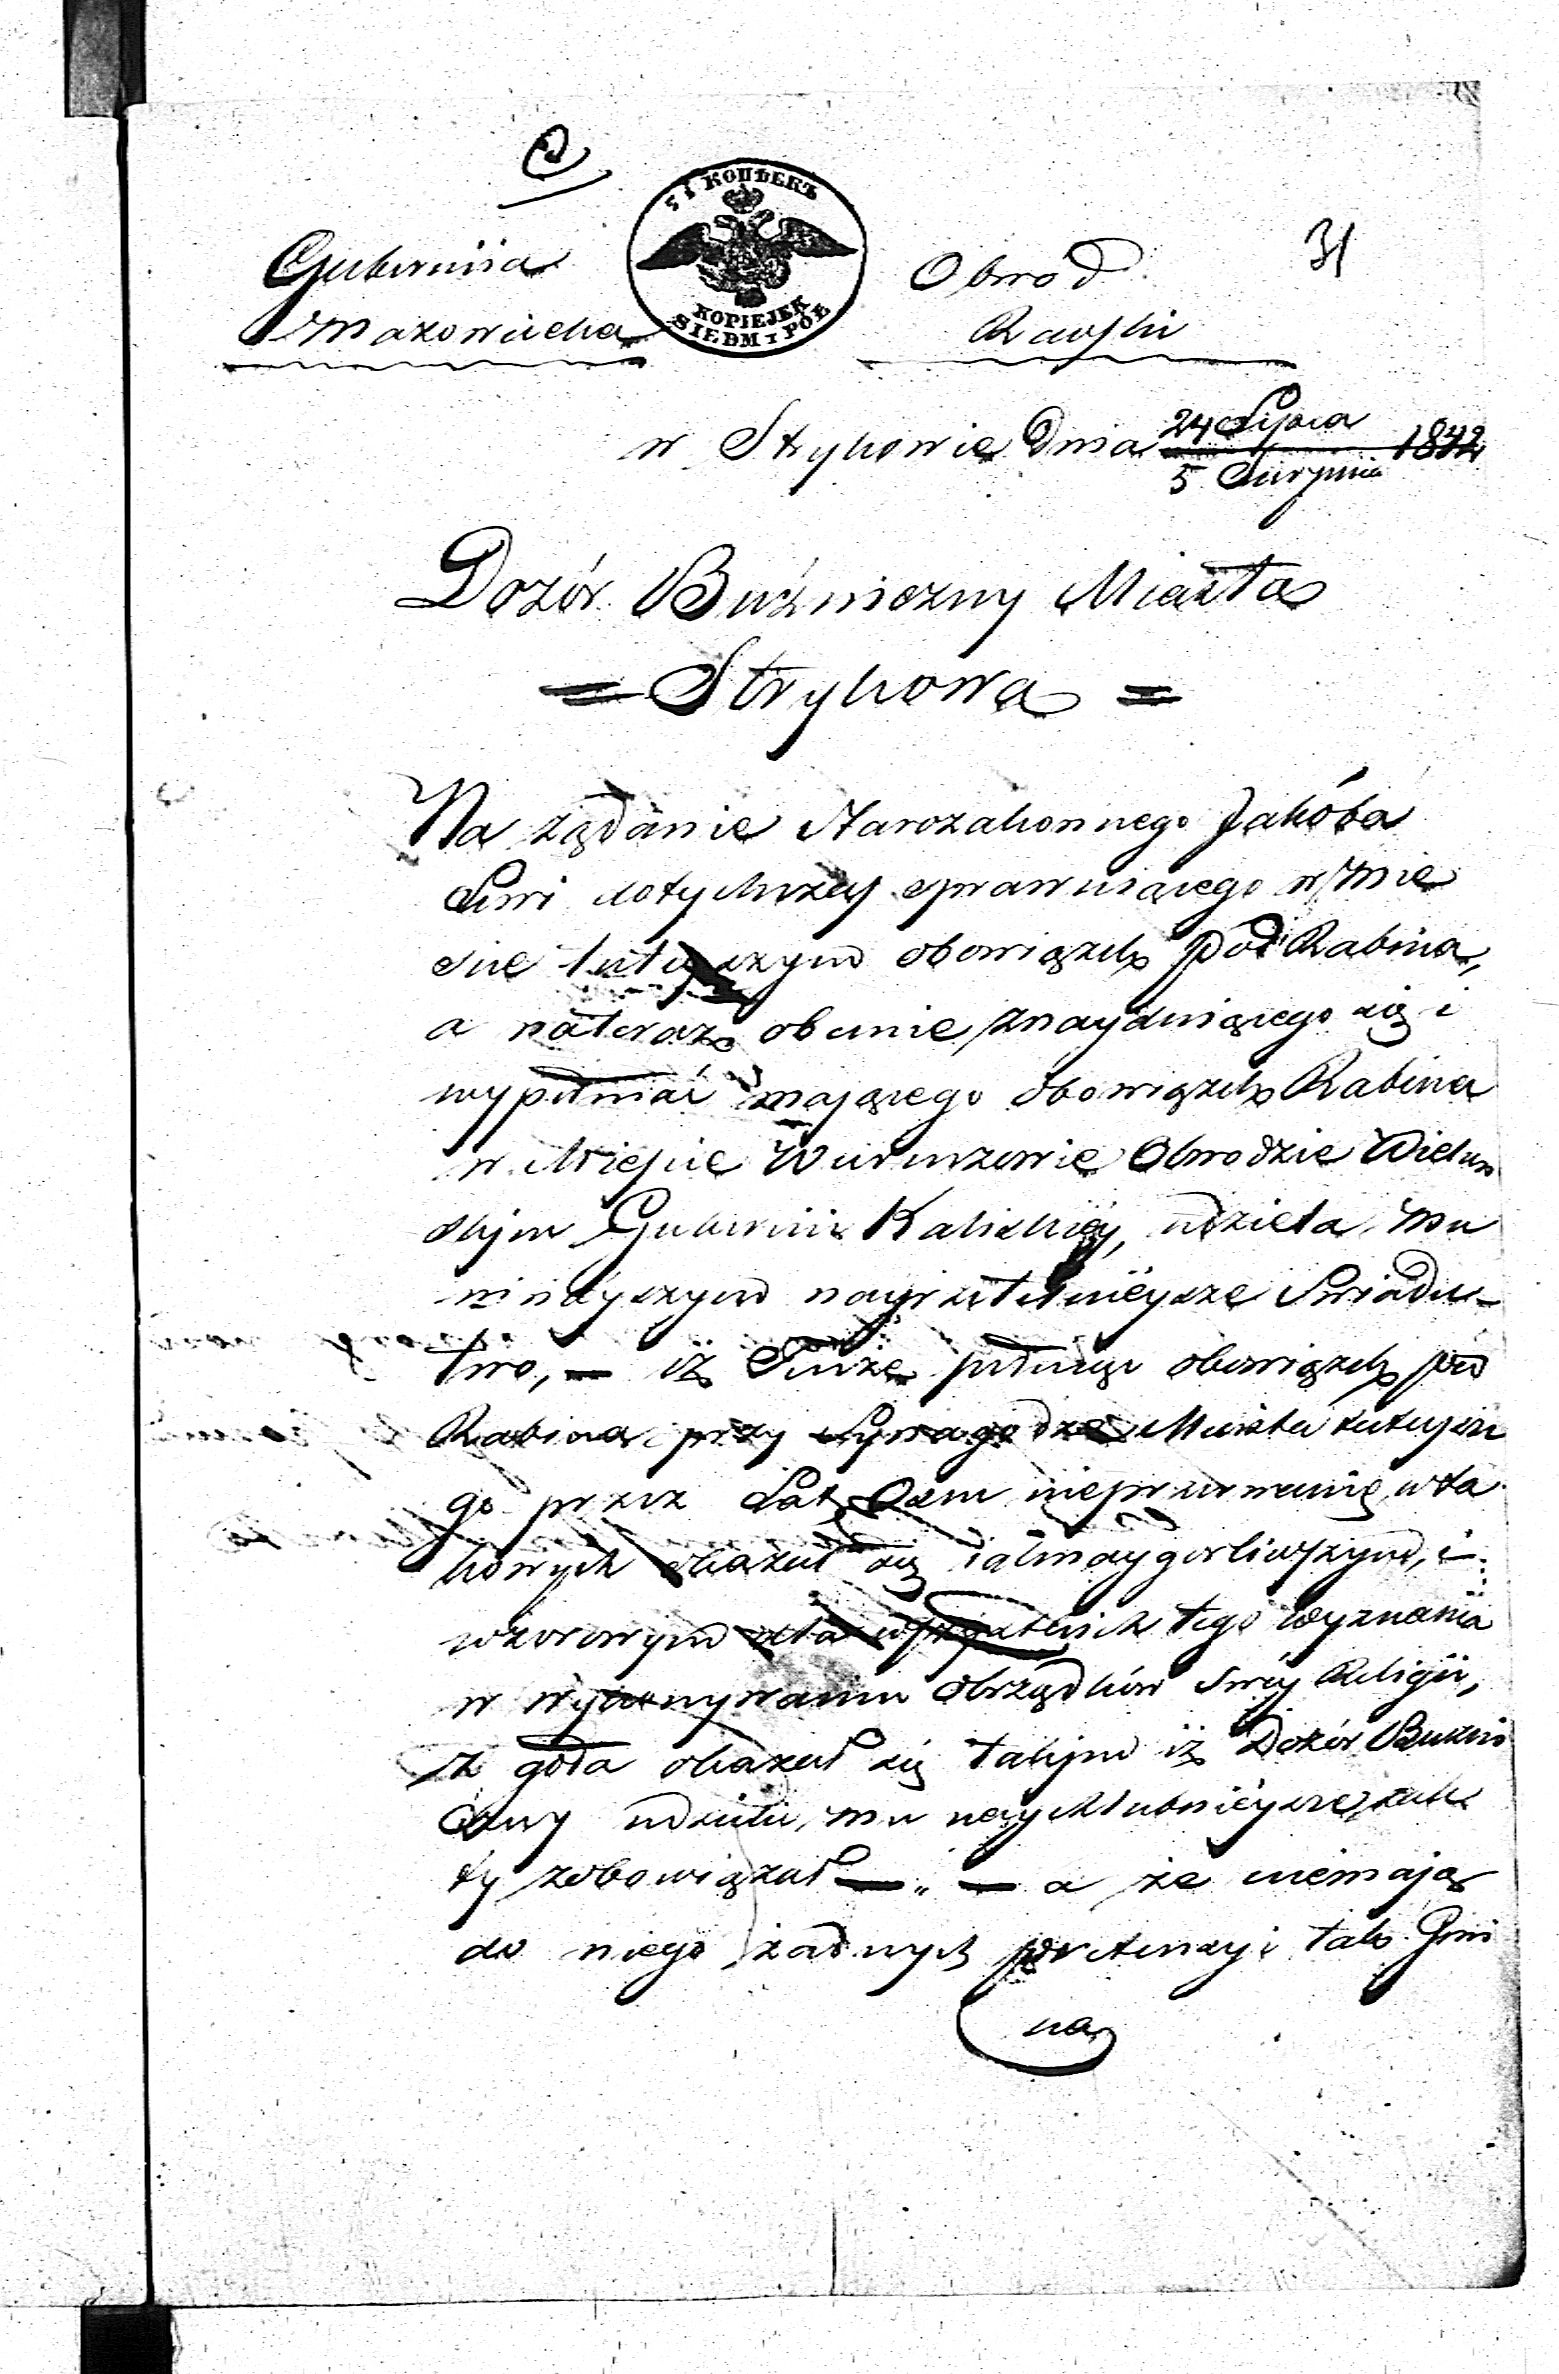 31
7½ КОПѢЕКЪ
KOPIEJEK
SIEDM i PÓŁ
Gubernija Obwód
Mazowiecka Rawski
w Strykowie dnia 24 Lipca / 5 Sierpnia 1842
Dozór Bużniczny Miasta
= Strykowa =
Na żądanie Starozakonnego Jakóba
Lewi dotychczas sprawuiącego w Mie
scie tuteyszym obowiązek pod Rabina,
a nateraz obecnie znayduiącego się i
wypełniać mającego obowiązek Rabina
w Mieście Wieruszowie Obwodzie Wieluń
skym Gubernii Kaliskiey, udziela mu
ninieyszym nayrzetelnieysze Swiadec-
two, — iż Tenże pełniąc obowiązek pod
Rabina przy Synagodze Miasta tuteysze
go przez Lat Osm nieprzerwanie, w ta
kowych okazał się iaknaygorliwszym, i
wzorowym dla wszystkich tego wyznania
w wykonywaniu Obrządków Swéy Religii,
z goła okazał się takym iż Dozór Bużni
czny udzielić mu naychlubnieysze zale
ty zobowiązał —„— a że niemając
do niego żadnych pretensyi tak Gmi
na